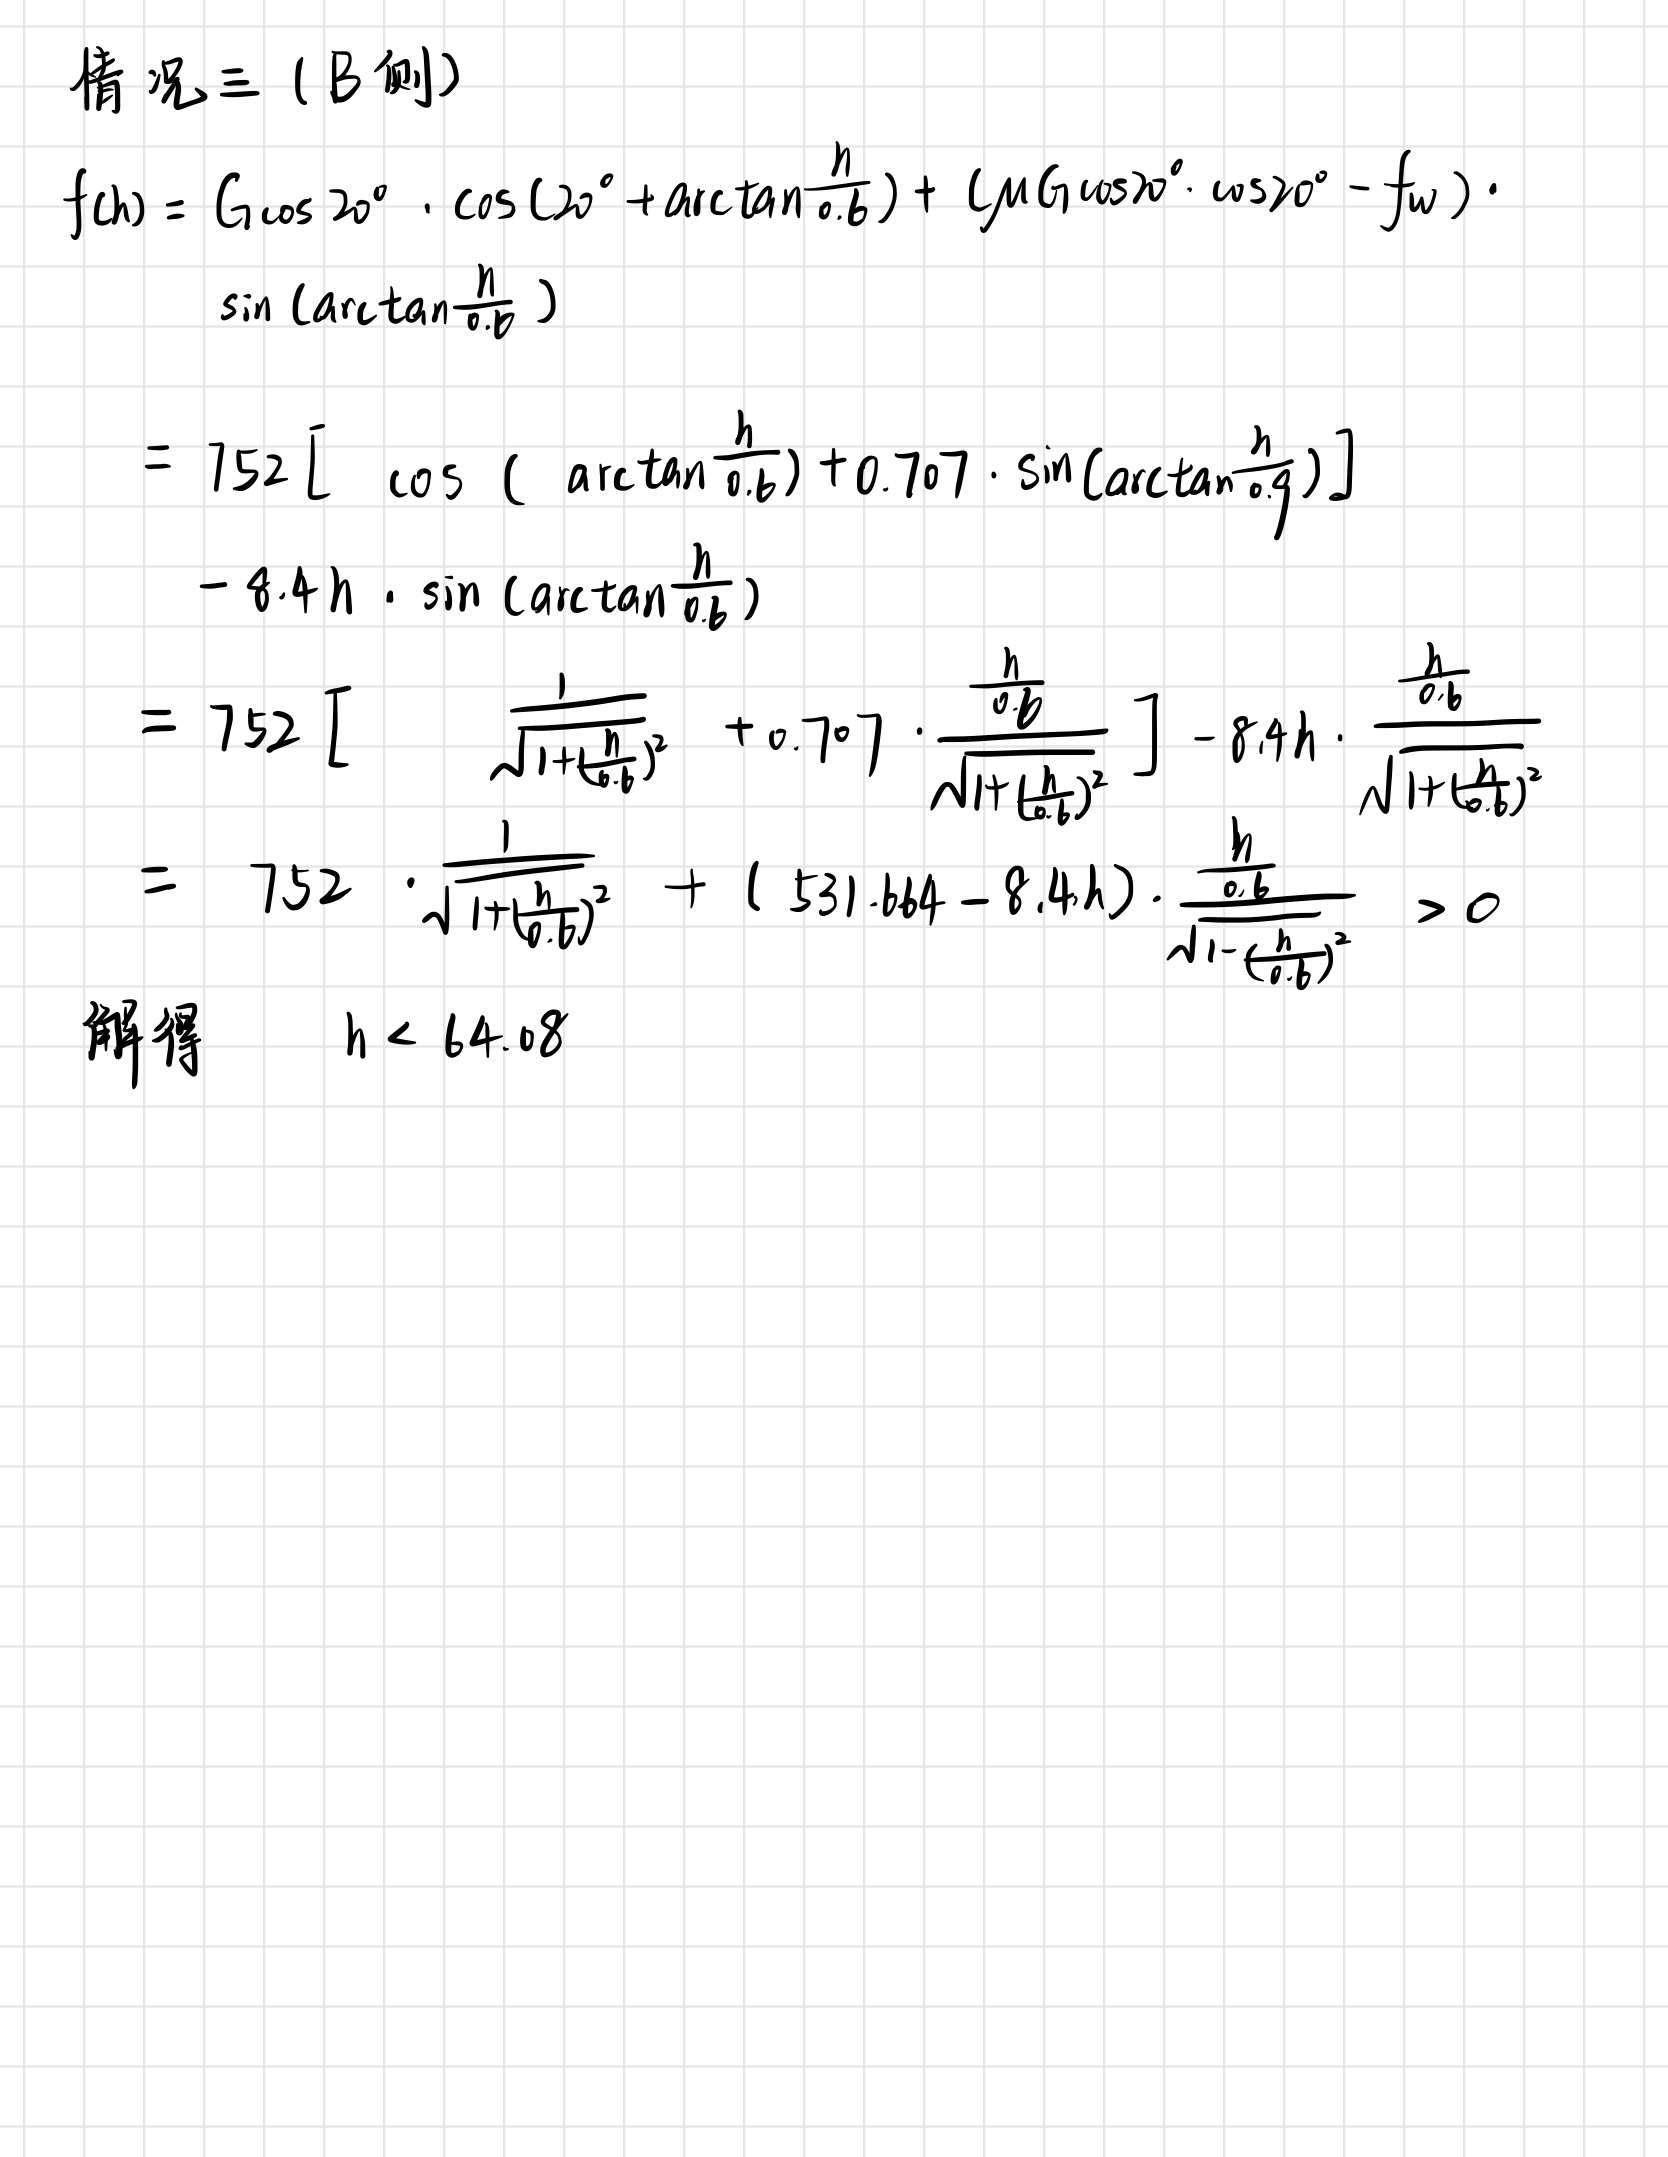 情况三(B侧)
f(h) = Gcos20° · cos(20°+arctan h/0.6) + (μGcos20°·cos20° - fw)·
sin(arctan h/0.6)
= 752[ cos( arctan h/0.6)+0.707·sin(arctan h/0.9)]
-8.4h · sin(arctan h/0.6)
= 752[ 1/√1+(h/0.6)² +0.707 · h/0.6/√1+(h/0.6)² ] -8.4h · h/0.6/√1+(h/0.6)²
= 752 · 1/√1+(h/0.6)² + (531.664-8.4h) · h/0.6/√1-(h/0.6)² >0
解得 h<64.08